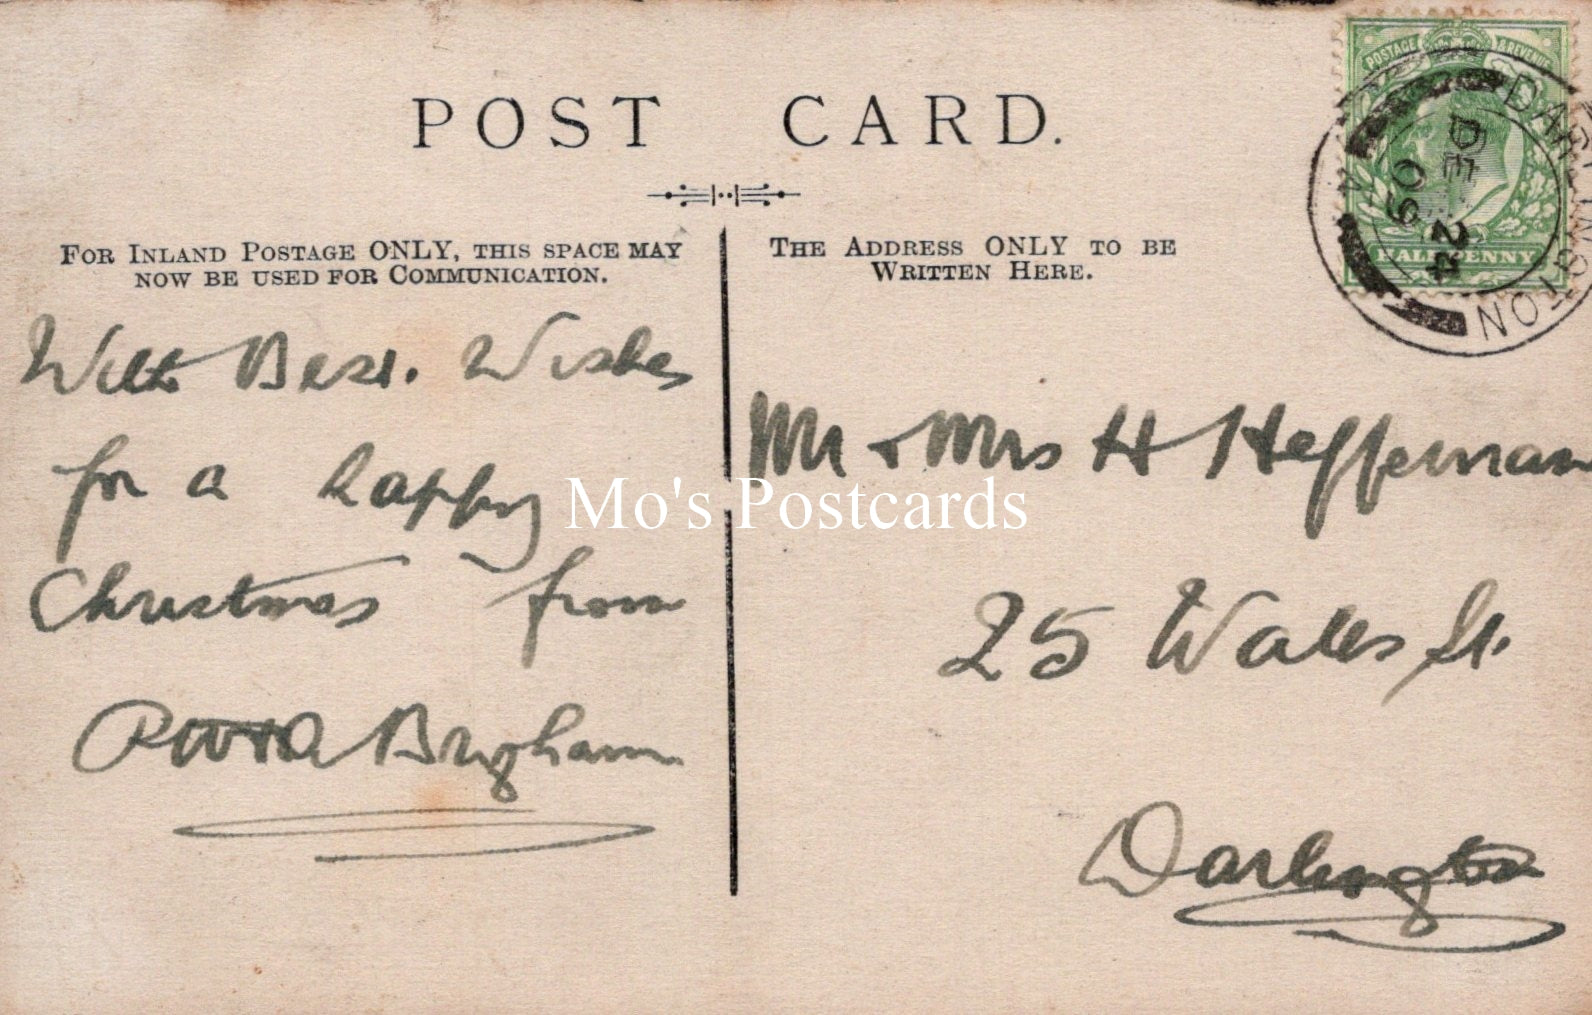 POST CARD.
FOR INLAND POSTAGE ONLY, THIS SPACE MAY
NOW BE USED FOR COMMUNICATION.
THE ADDRESS ONLY TO BE
WRITTEN HERE.
POSTAGE & REVENUE
HALFPENNY
DARLINGTON
DE 24
09
With Best. Wishes
for a happy
Christmas from
Brigham
Mr & Mrs H Heffernan
25 Wales St.
Darlington
Mo's Postcards